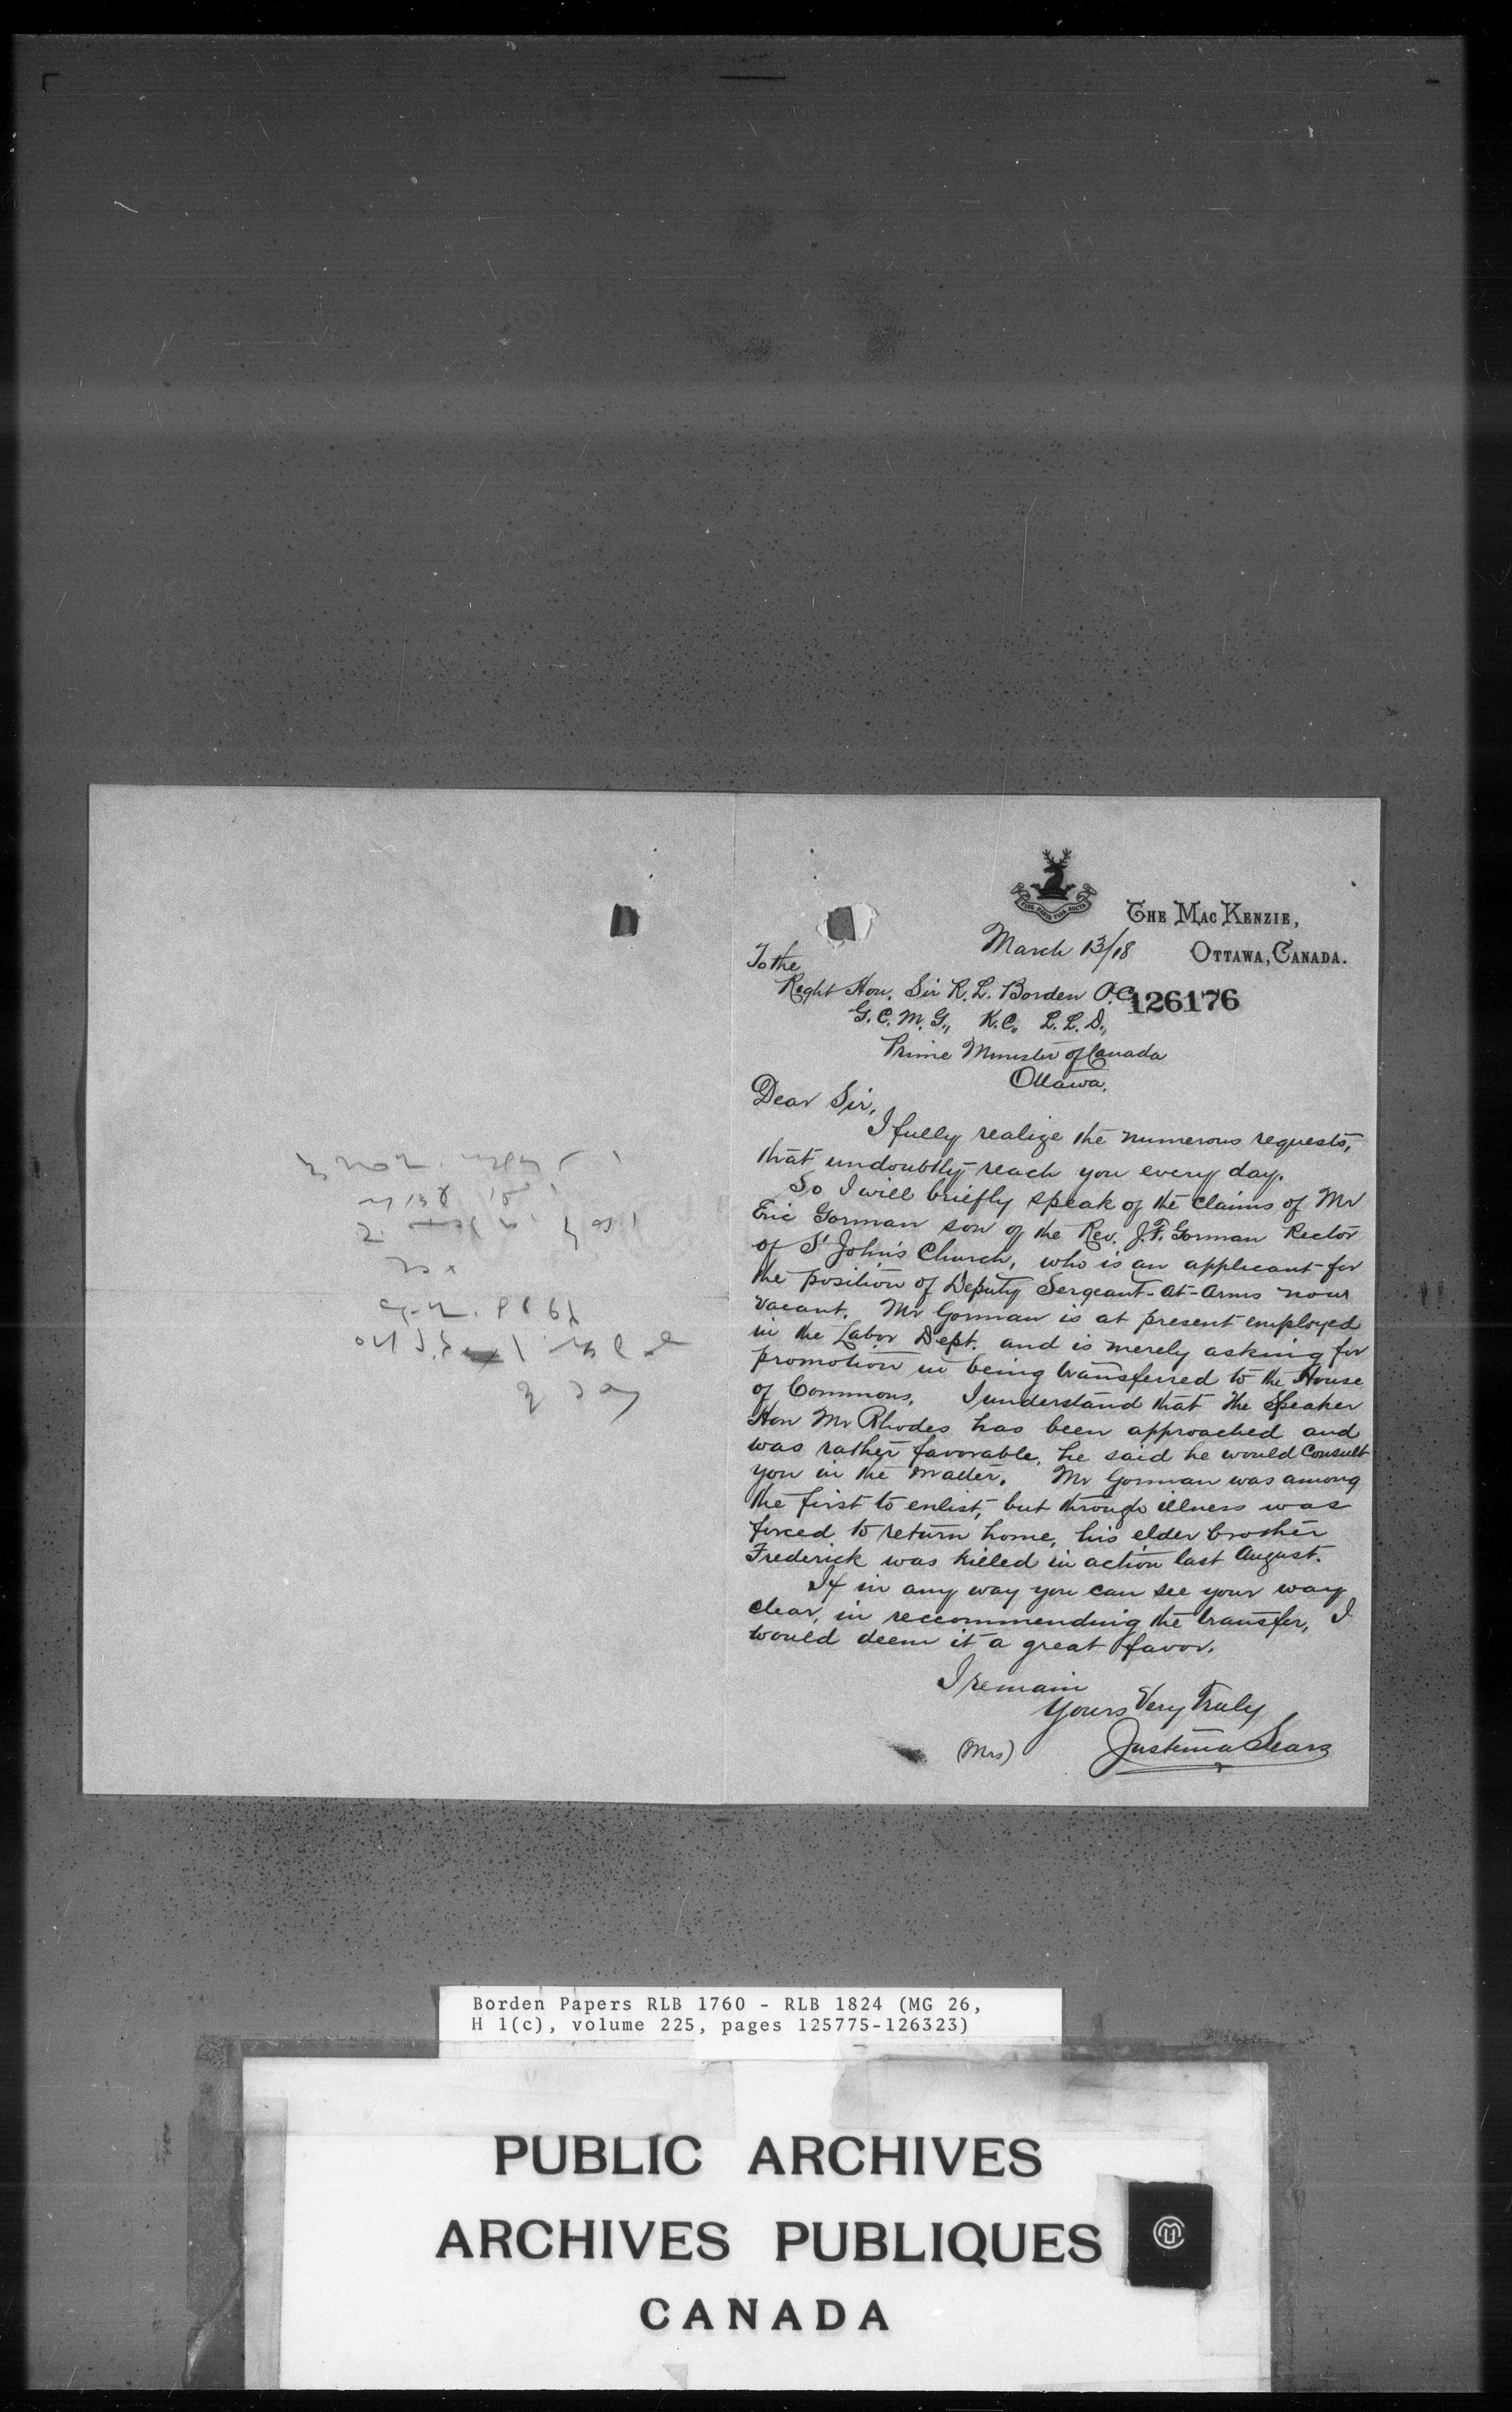 The Mac Kenzie,
Ottawa, Canada.
March 13/18
To the
Right Hon. Sir R. L. Borden P.C.
126176
G.C.M.G., K.C. L.L.D.,
Prime Minister of Canada
Ottawa.
Dear Sir,
I fully realize the numerous requests,
that undoubtly reach you every day.
So I will briefly speak of the claims of Mr
Eric Gorman son of the Rev. J.F. Gorman Rector
of St John's Church, who is an applicant for
the position of Deputy Sergeant-at-Arms now
vacant. Mr Gorman is at present employed
in the Labor Dept. and is merely asking for
promotion in being transferred to the House
of Commons. I understand that the Speaker
Hon Mr Rhodes has been approached and
was rather favorable, he said he would consult
you in the matter. Mr Gorman was among
the first to enlist, but through illness was
forced to return home, his elder brother
Frederick was killed in action last August.
If in any way you can see your way
clear, in reccommending the transfer, I
would deem it a great favor.
I remain
Yours Very Truly
(Mrs) Justina Sears
Borden Papers RLB 1760 - RLB 1824 (MG 26,
H 1(c), volume 225, pages 125775-126323)
PUBLIC ARCHIVES
ARCHIVES PUBLIQUES
CANADA